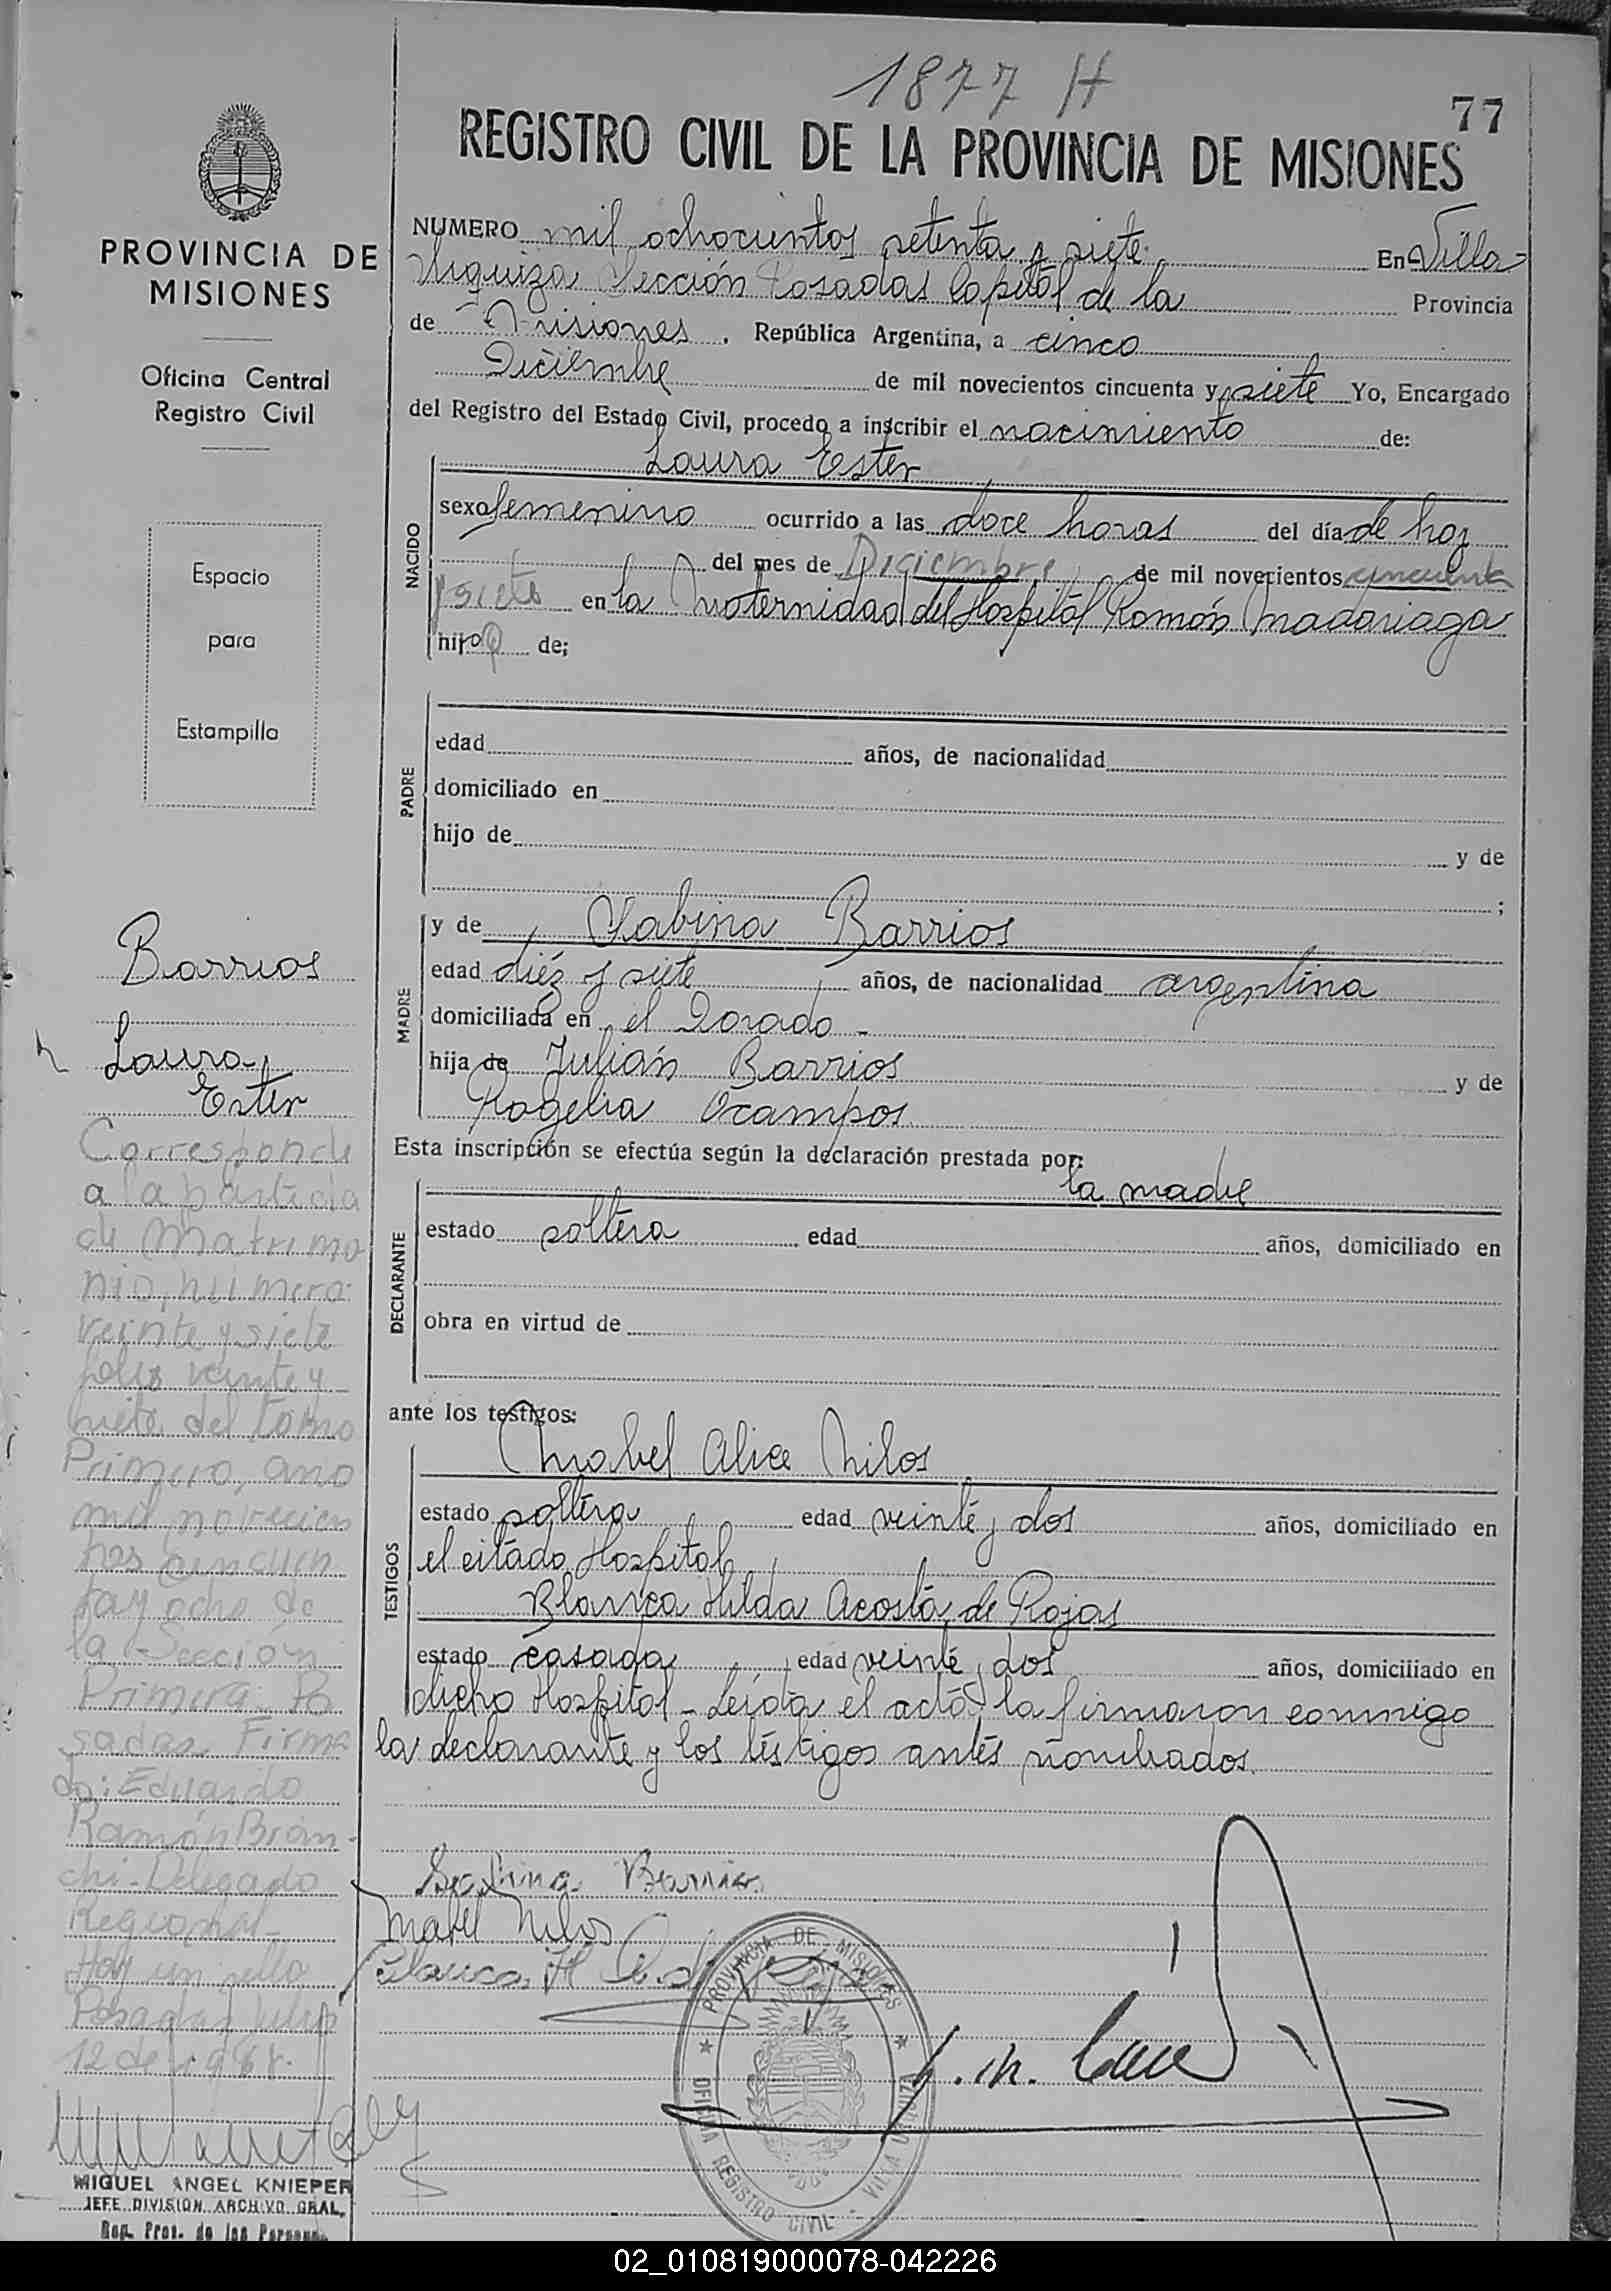 1877 H
77
REGISTRO CIVIL DE LA PROVINCIA DE MISIONES
PROVINCIA DE
MISIONES
Oficina Central
Registro Civil
Espacio
para
Estampilla
NUMERO mil ochocientos setenta y siete En Villa
Urquiza Sección Posadas Capital de la Provincia
de Misiones, República Argentina, a cinco
Diciembre de mil novecientos cincuenta y siete Yo, Encargado
del Registro del Estado Civil, procedo a inscribir el nacimiento de:
Laura Ester
NACIDO
sexo femenino ocurrido a las doce horas del día de hoy
del mes de Diciembre de mil novecientos cincuenta
y siete en la Maternidad del Hospital Ramón Madariaga
hijo de;
PADRE
edad años, de nacionalidad
domiciliado en
hijo de y de
;
MADRE
y de Sabina Barrios
edad diéz y siete años, de nacionalidad argentina
domiciliada en el Dorado -
hija de Julián Barrios y de
Rogelia Ocampos
Esta inscripción se efectúa según la declaración prestada por:
la madre
DECLARANTE
estado soltera edad años, domiciliado en
obra en virtud de
ante los testigos:
TESTIGOS
Mabel Alice Nilos
estado soltera edad veinte y dos años, domiciliado en
el citado Hospital
Blanca Hilda Acosta de Rojas
estado casada edad veinte y dos años, domiciliado en
dicho Hospital - Leída el acta, la firmaron conmigo
la declarante y los testigos antes nombrados.
Sabina Barrios
Mabel Nilos
Blanca H A. de
PROVINCIA DE MISIONES
OFICINA REGISTRO CIVIL - VILLA URQUIZA
Barrios
Laura
Ester
Corresponde
a la partida
de Matrimo
nio, número
veinte y siete
folio veinte y
siete del tomo
Primero, año
mil novecien
tos cincuen
ta y ocho de
la Sección
Primera Po
sadas. Firma
do: Eduardo
Ramón Bian-
chi - Delegado
Regional -
Hay un sello
Posadas, Julio
12 de
MIGUEL ANGEL KNIEPER
JEFE DIVISION ARCHIVO GRAL.
Reg. Prov. de las Personas
02_010819000078-042226